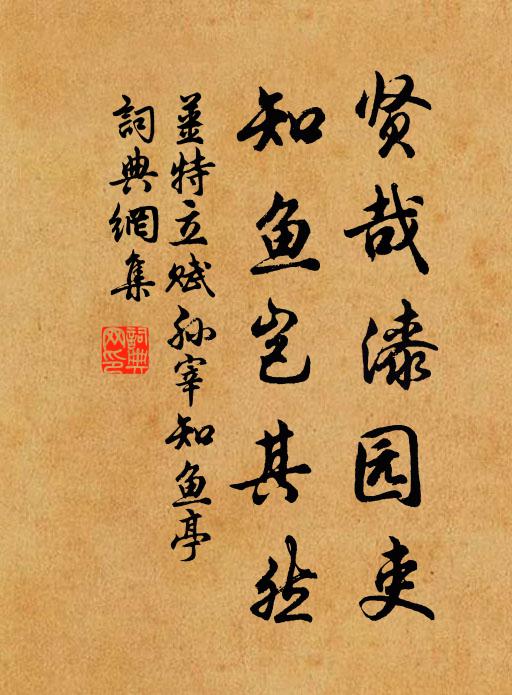 贤哉漆园吏
知鱼岂其然
姜特立赋孙宰知鱼亭
詞典網集
詞典网印